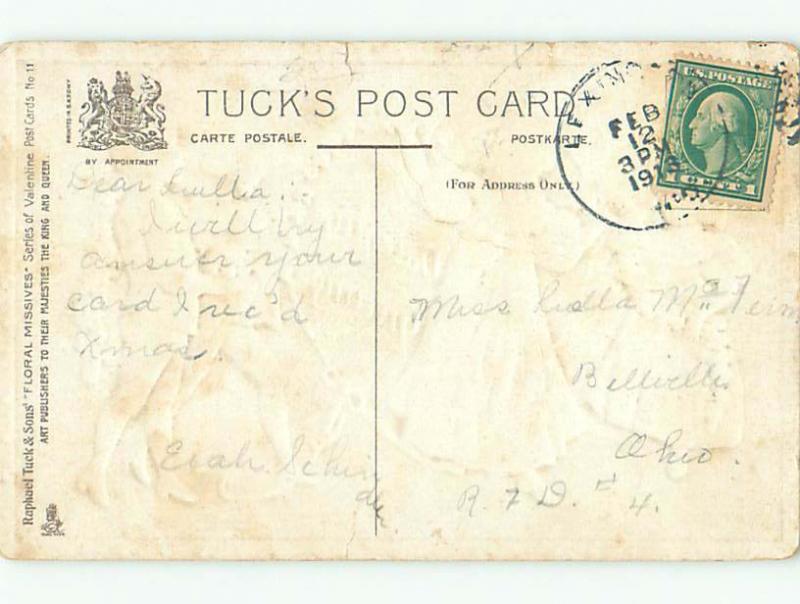 Raphael Tuck & Sons' "FLORAL MISSIVES" Series of Valentine Post Cards No 11
ART PUBLISHERS TO THEIR MAJESTIES THE KING AND QUEEN.
PRINTED IN SAXONY
BY APPOINTMENT
TUCK'S POST CARD
CARTE POSTALE.
POSTKARTE.
(FOR ADDRESS ONLY.)
FEB
12
3 PM
U.S. POSTAGE
Dear
I will try
answer your
card I rec'd
Xmas.
Miss
Ohio.
R. F. D. # 4.